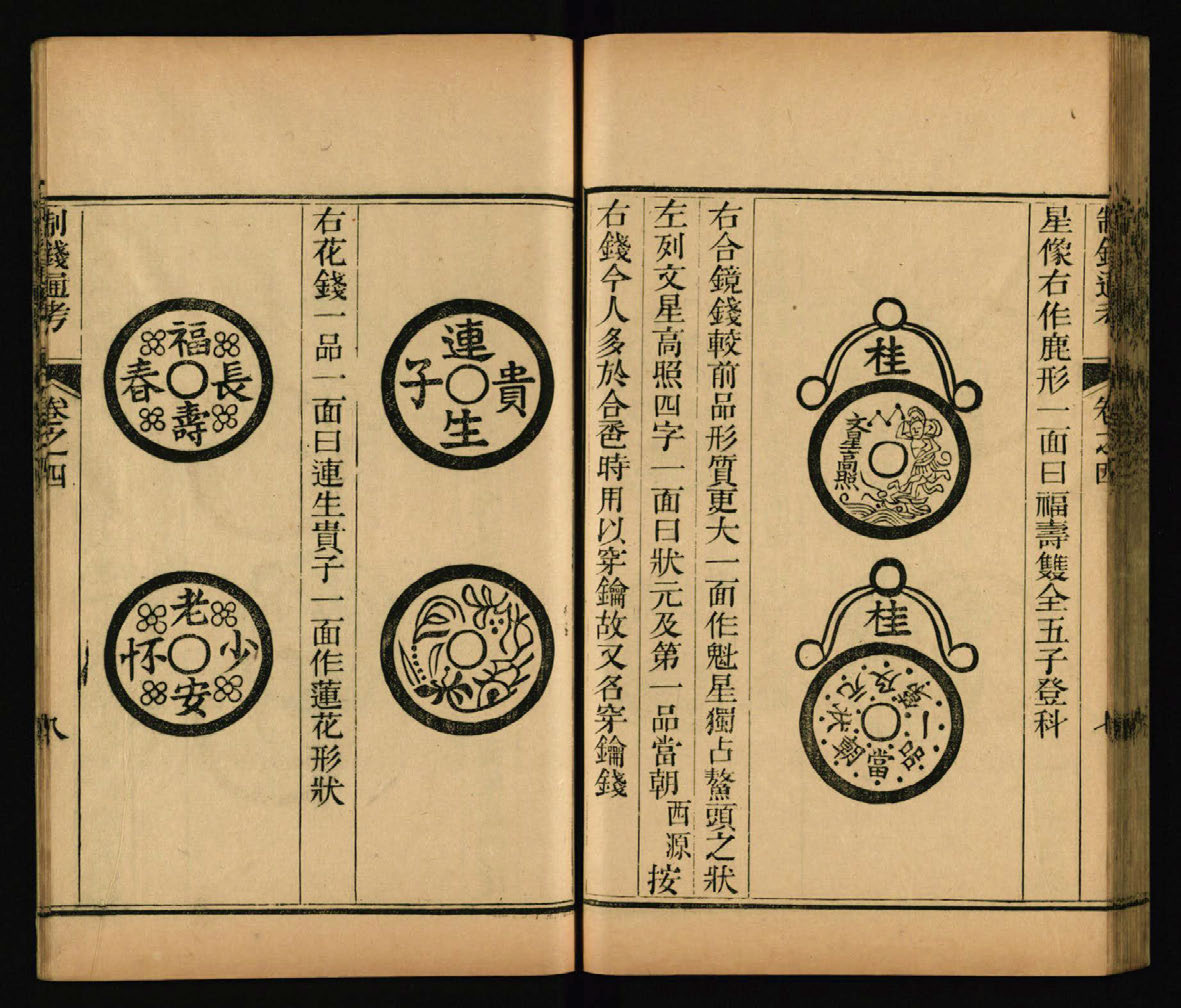 制錢通考 卷之四 七
星像右作鹿形一面曰福壽雙全五子登科
桂
文星高照
桂
狀元及第一品當朝
右合鏡錢較前品形質更大一面作魁星獨占鰲頭之狀
左列文星高照四字一面曰狀元及第一品當朝西源按
右錢今人多於合卺時用以穿鑰故又名穿鑰錢
連生貴子
右花錢一品一面曰連生貴子一面作蓮花形狀
福壽長春
老安少怀
制錢通考 卷之四 八